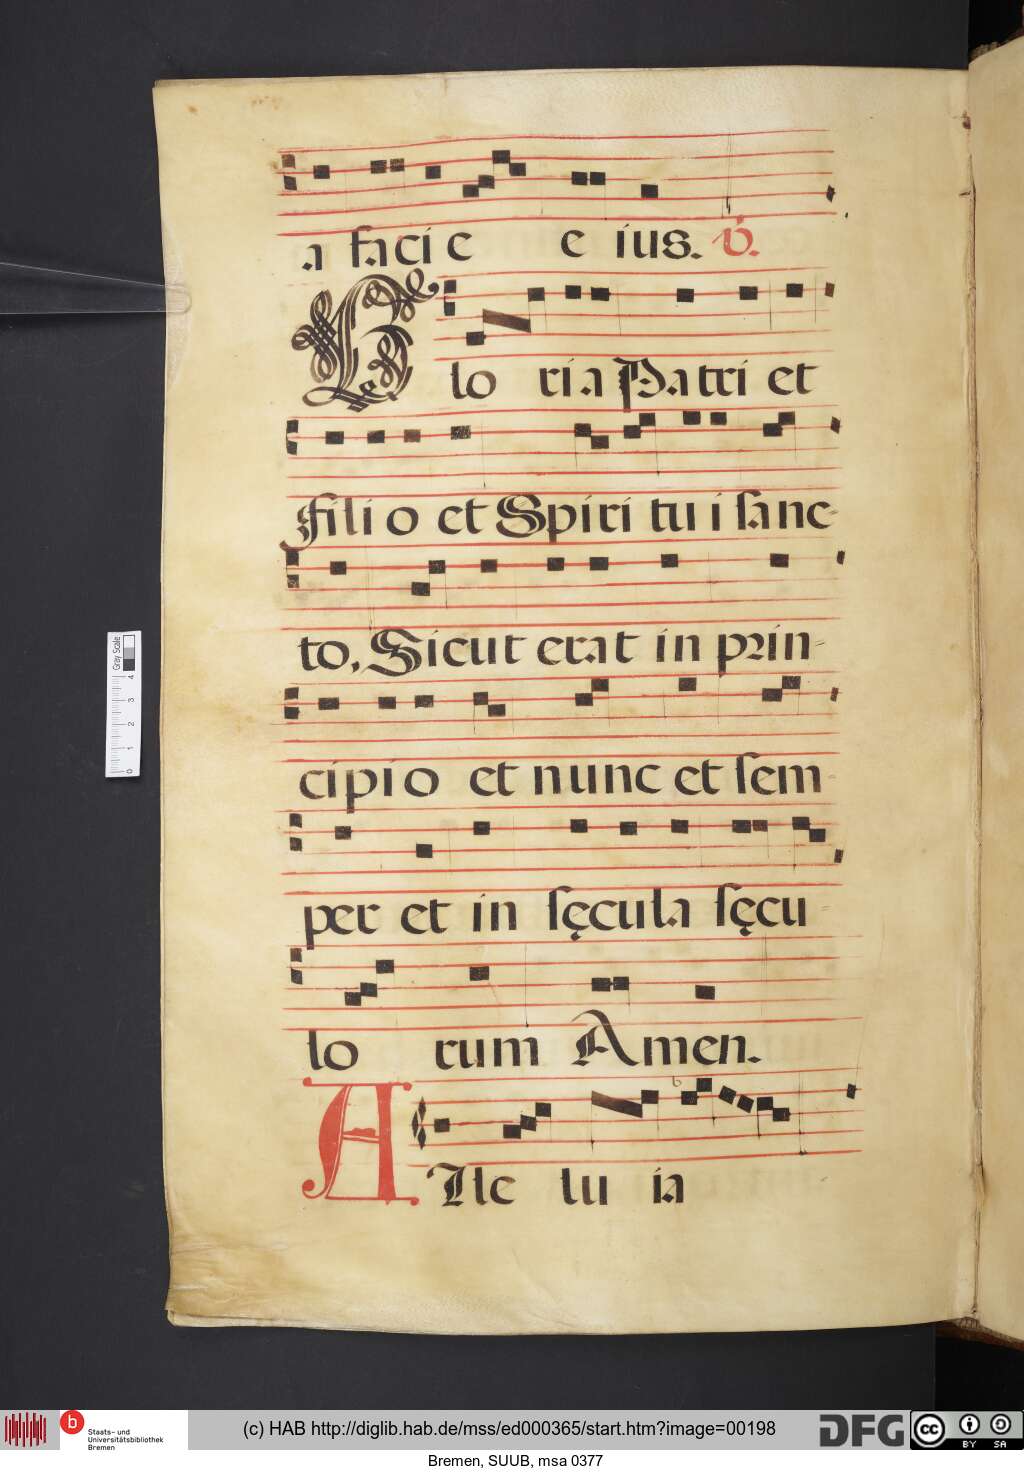 a faci e e ius. ℣.
Glo ria Patri et
Filio et Spiri tu i sanc-
to, Sicut erat in prin-
cipio et nunc et sem
per et in sęcula sęcu
lo rum Amen.
A Lle lu ia
Gray Scale
0 1 2 3 4
b Staats- und
Universitätsbibliothek
Bremen
(c) HAB http://diglib.hab.de/mss/ed000365/start.htm?image=00198
DFG
cc BY SA
Bremen, SUUB, msa 0377